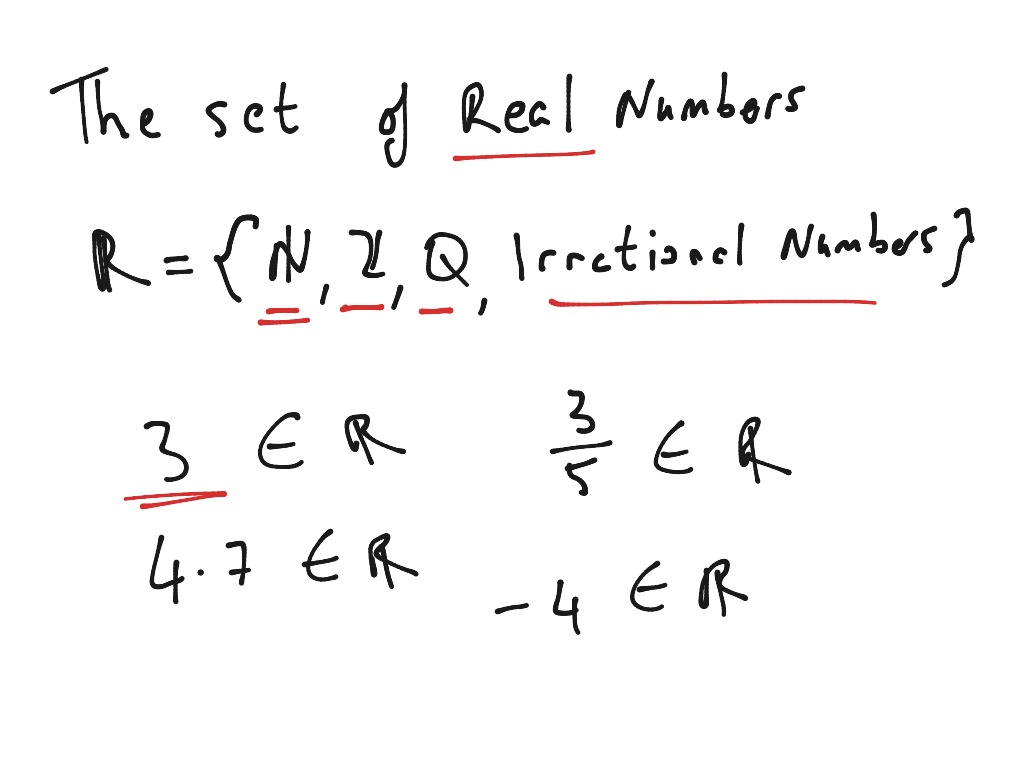 The set of Real Numbers
ℝ = {ℕ, ℤ, Q, Irrational Numbers}
3 ∈ ℝ 3/5 ∈ ℝ
4.7 ∈ ℝ -4 ∈ ℝ